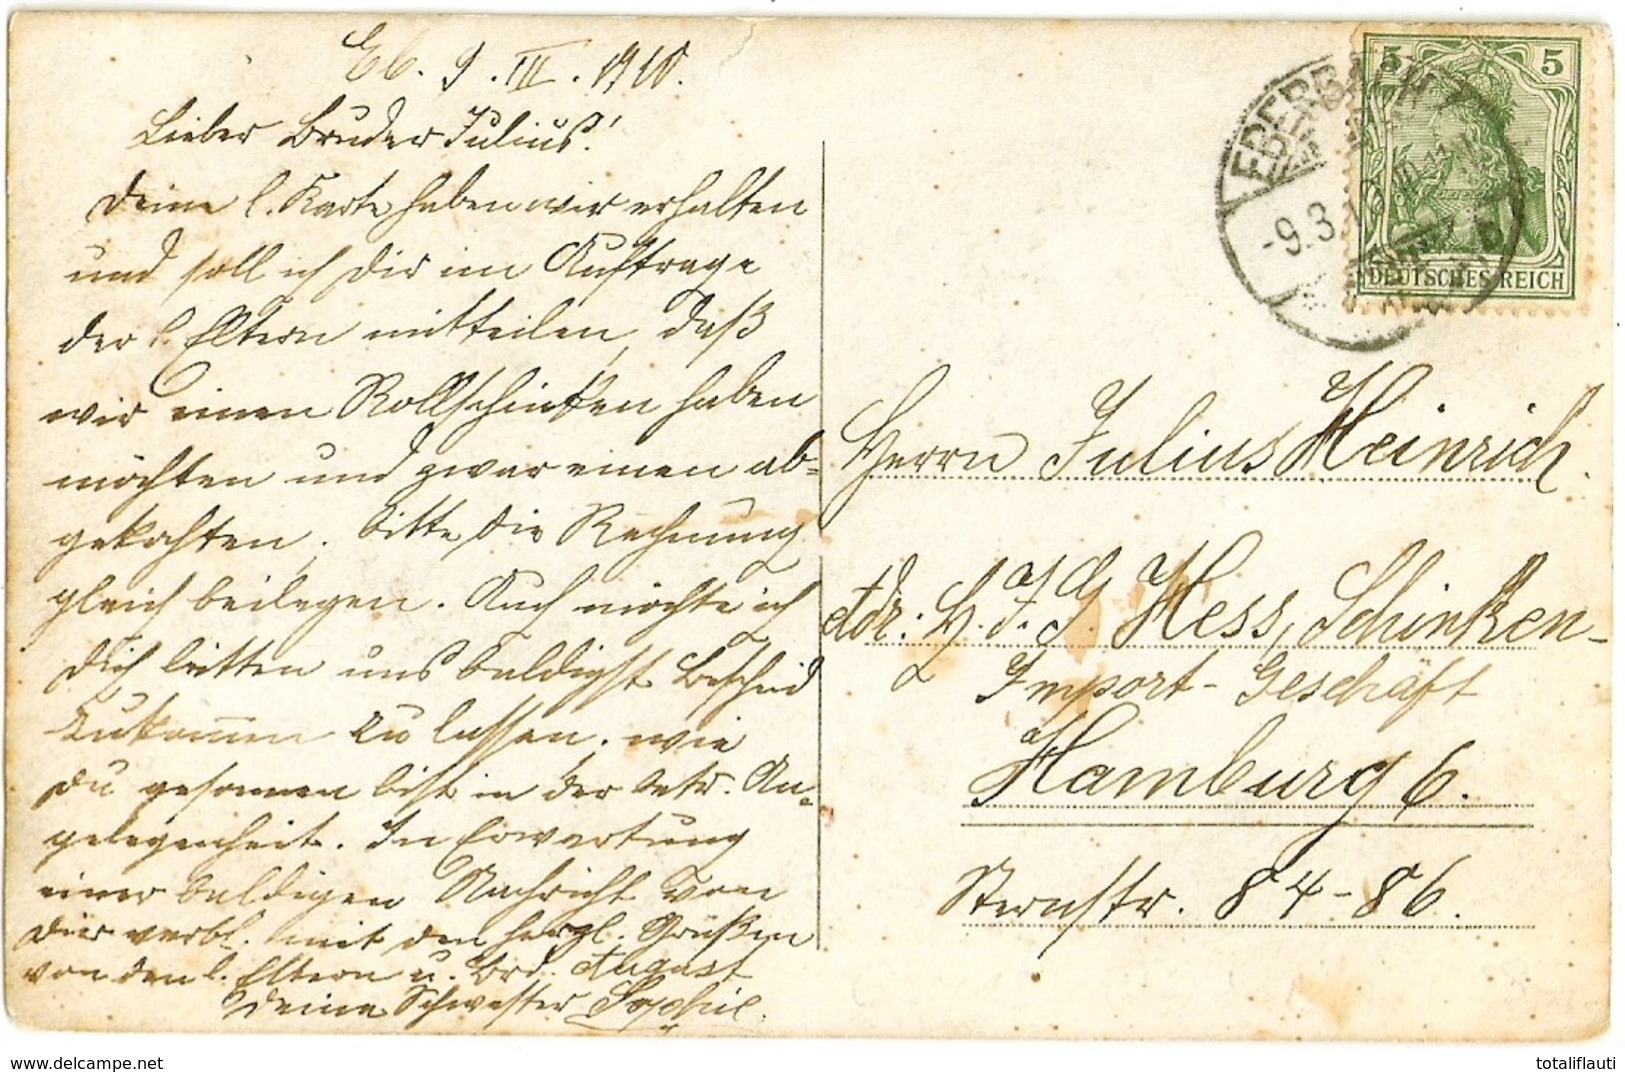 Eb. 9. III. 1910.
Lieber Bruder Julius!
Deine l. Karte haben wir erhalten
und soll ich Dir im Auftrage
der l. Eltern mitteilen, daß
wir einen Rollschinken haben
möchten und zwar einen ab-
gekochten, bitte die Rechnung
gleich beilegen. Auch möchte ich
Dich bitten uns baldigst Bescheid
zukommen zu lassen, wie
Du gesonnen bist in der betr. An-
gelegenheit. In Erwartung
einer baldigen Nachricht von
Dir verbl. mit den herzl. Grüßen
von den l. Eltern u. Brd. August
Deine Schwester Sophie.
5 5
DEUTSCHES REICH
EBERBACH
-9.3.
Herrn Julius Heinrich.
Adr: H. F. G. Hess, Schinken-
Import-Geschäft
Hamburg 6.
Sternstr. 84-86.
www.delcampe.net
totaliflauti